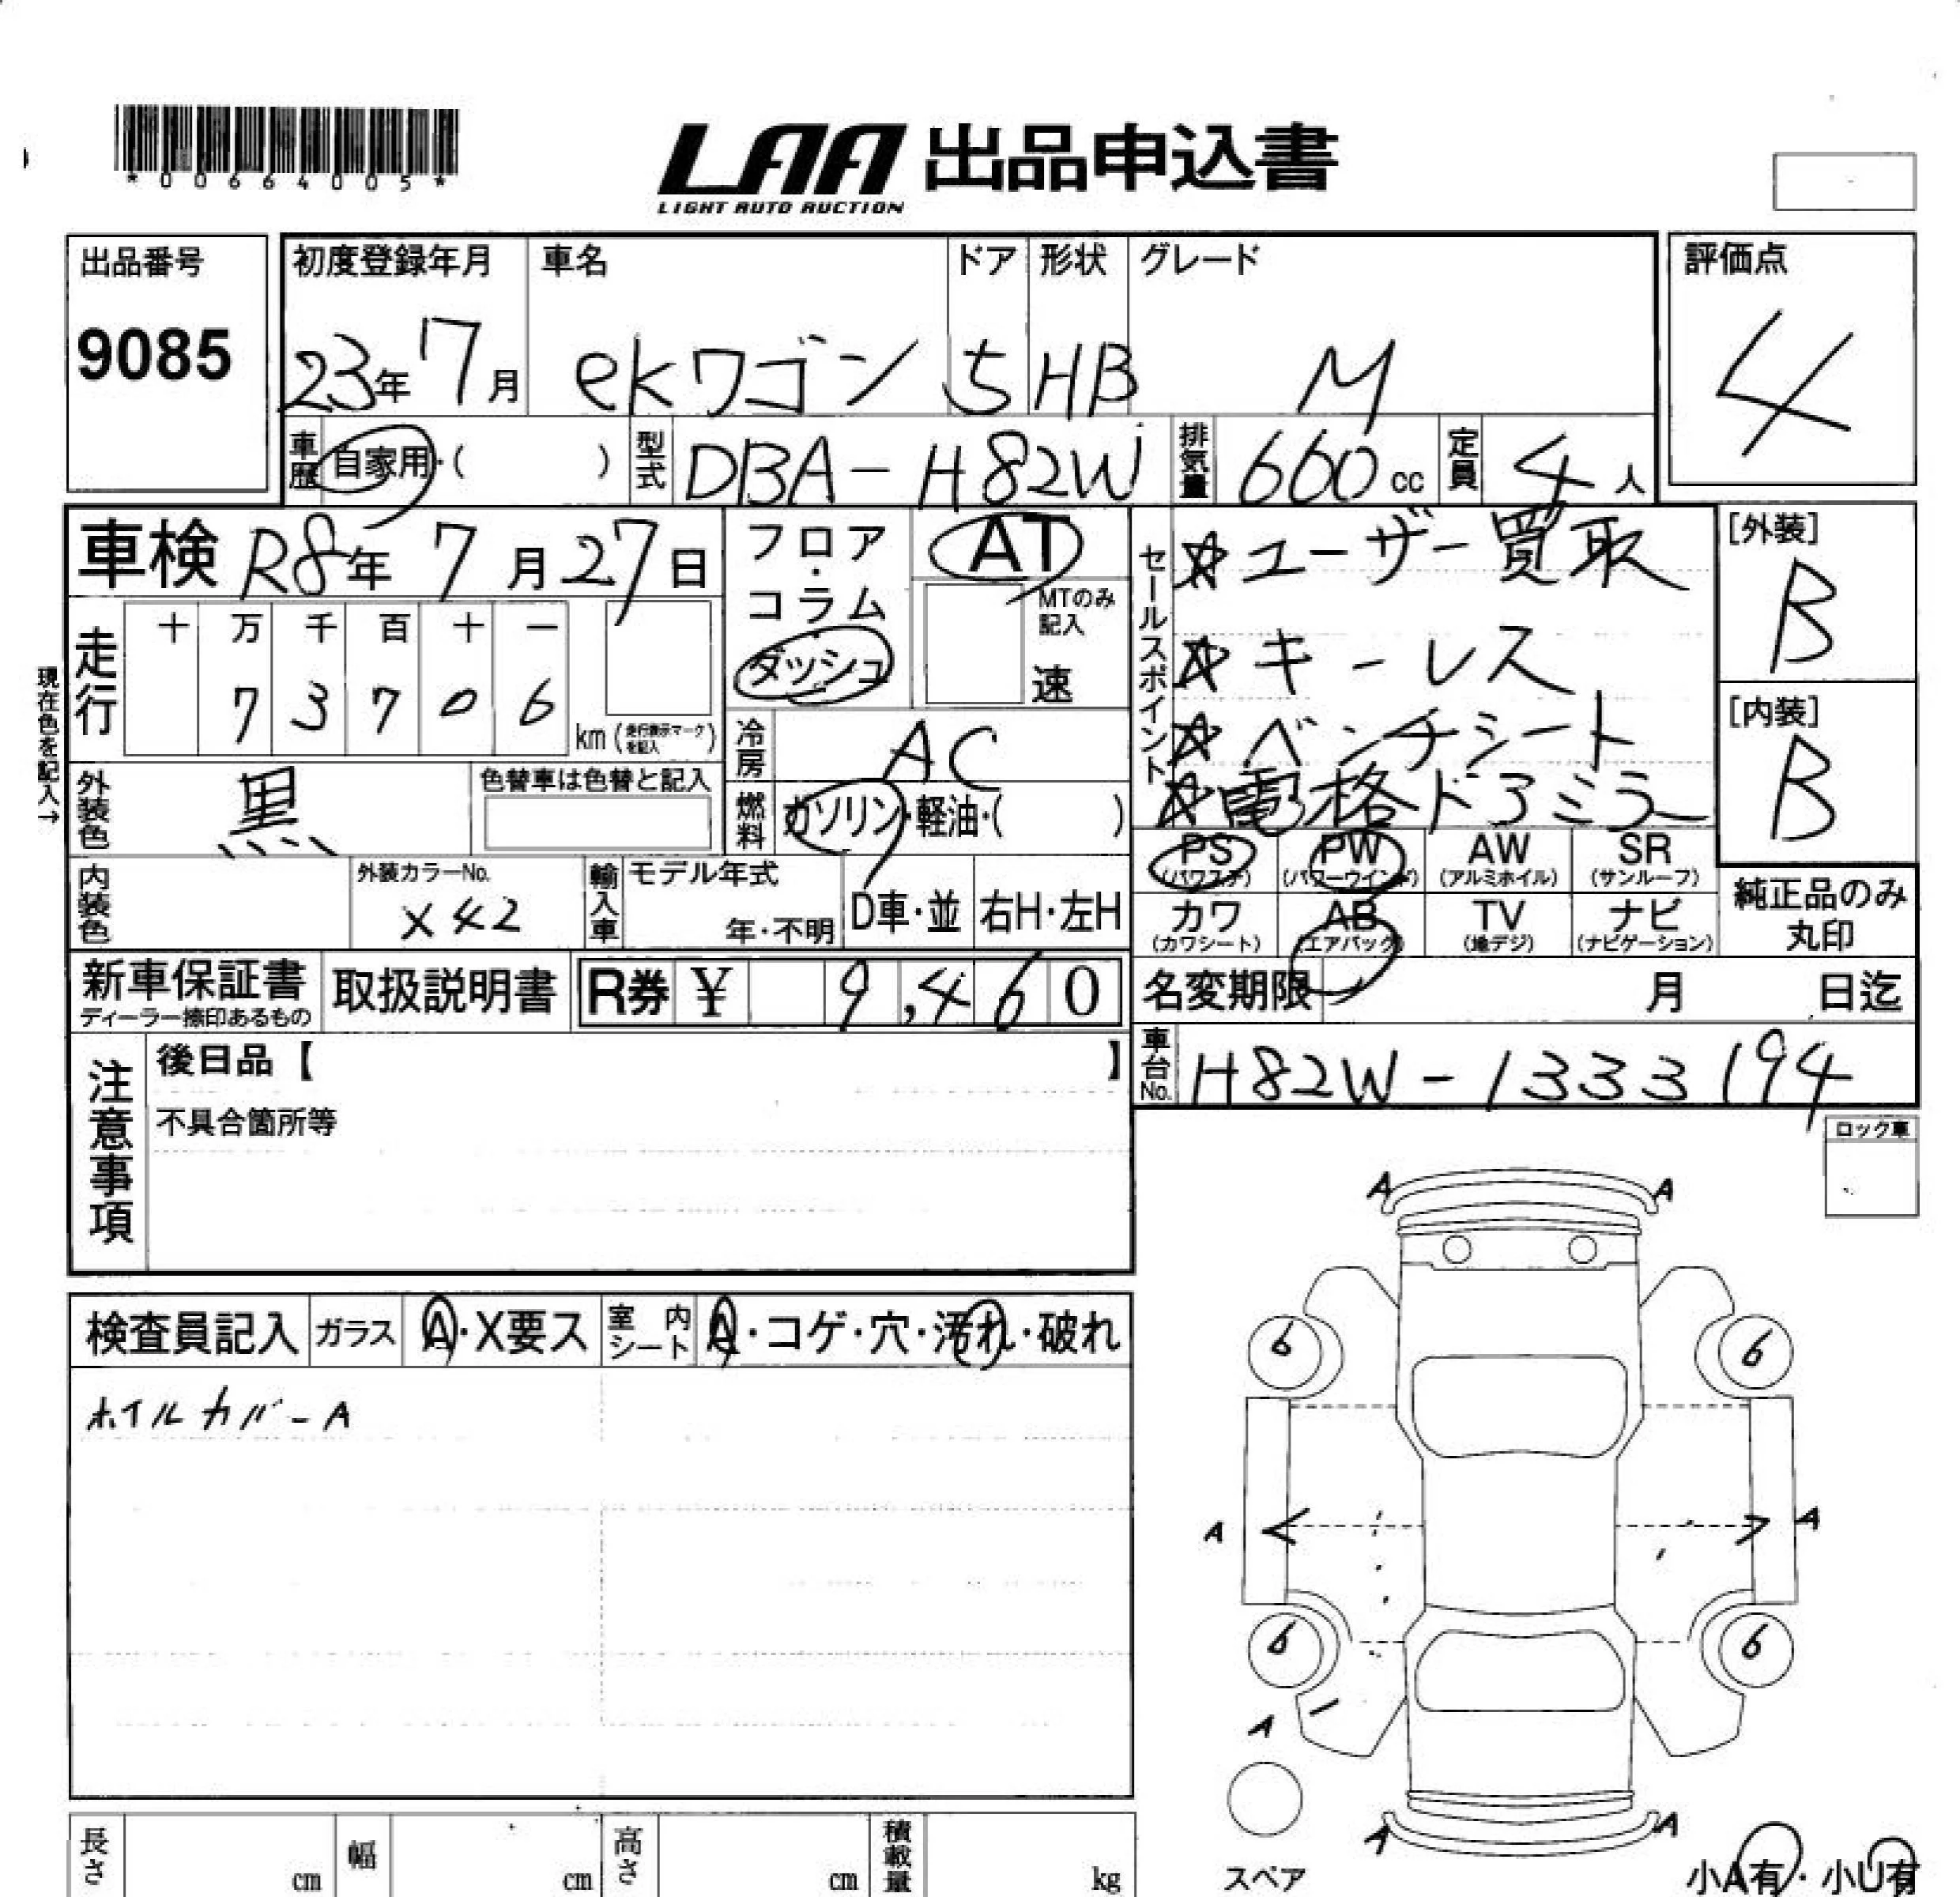 *00664005*
LAA 出品申込書
LIGHT AUTO AUCTION
出品番号 初度登録年月 車名 ドア 形状 グレード 評価点
9085 23年 7月 ekワゴン 5 HB M 4
車歴 自家用・( ) 型式 DBA-H82W 排気量 660 cc 定員 4人
車検 R8年 7月27日
フロア・コラム・ダッシュ
AT
MTのみ記入
速
セールスポイント
☆ユーザー買取
☆キーレス
☆ベンチシート
☆電格ドアミラー
[外装]
B
[内装]
B
現在色を記入→
走行 十 万 千 百 十 一
7 3 7 0 6 km (走行表示マークを記入)
冷房 AC
外装色 黒 色替車は色替と記入
燃料 ガソリン・軽油・( )
PS (パワステ) PW (パワーウインド) AW (アルミホイル) SR (サンルーフ)
カワ (カワシート) AB (エアバック) TV (地デジ) ナビ (ナビゲーション)
純正品のみ丸印
内装色 外装カラーNo. X42 輸入車 モデル年式 年・不明 D車・並 右H・左H
新車保証書 ディーラー捺印あるもの 取扱説明書 R券 ¥ 9,460
名変期限 月 日迄
注意事項 後日品【 】
不具合箇所等
車台No. H82W-1333194
ロック車
検査員記入 ガラス A・X要ス 室内シート A・コゲ・穴・汚れ・破れ
ホイルカバーA
A A
6 6
A A
6 6
A
A A
スペア
小A有・小U有
長さ cm 幅 cm 高さ cm 積載量 kg